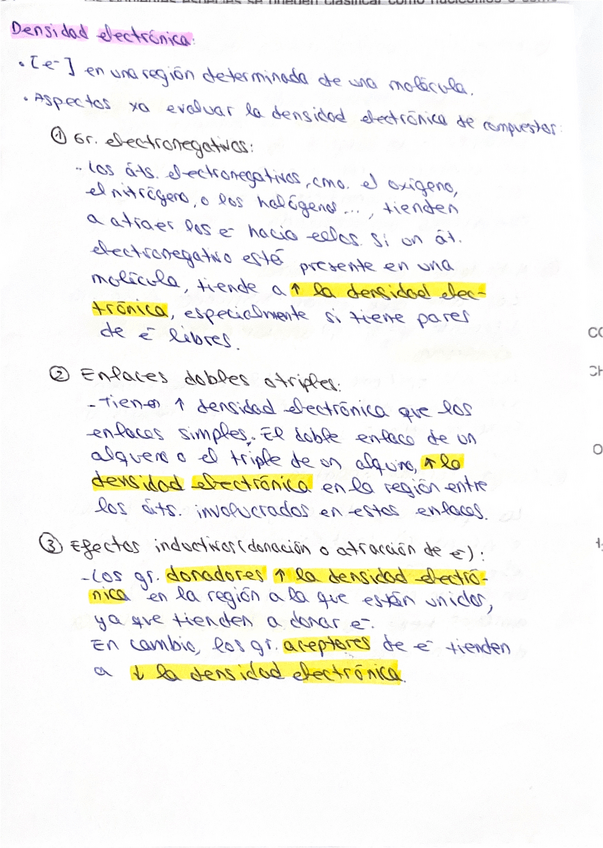 Densidad electrónica:
• [e⁻] en una región determinada de una molécula.
• Aspectos xa evaluar la densidad electrónica de compuestos:
① Gr. electronegativos:
- Los áts. electronegativos, cmo. el oxígeno,
el nitrógeno, o los halógenos..., tienden
a atraer los e⁻ hacia ellos. Si un át.
electronegativo está presente en una
molécula, tiende a ↑ la densidad elec-
trónica, especialmente si tiene pares
de e⁻ libres.
② Enlaces dobles o triples:
- Tienen ↑ densidad electrónica que los
enlaces simples. El doble enlace de un
alqueno o el triple de un alquino, ↑ la
densidad electrónica en la región entre
los áts. involucrados en estos enlaces.
③ Efectos inductivos (donación o atracción de e⁻):
- Los gr. donadores ↑ la densidad electró-
nica en la región a la que están unidos,
ya que tienden a donar e⁻.
En cambio, los gr. aceptores de e⁻ tienden
a ↓ la densidad electrónica.
CH